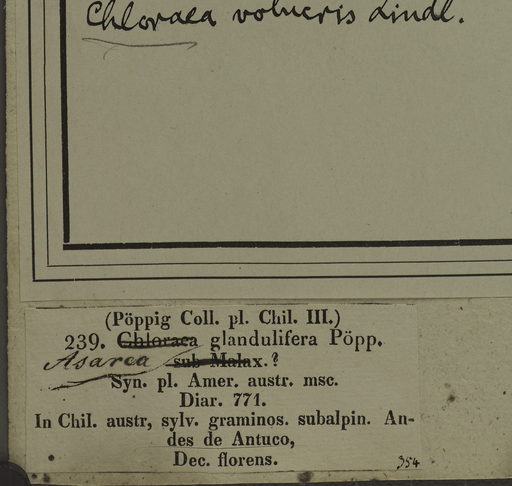 Chloraea volucris Lindl.
(Pöppig Coll. pl. Chil. III.)
239. Chloraea glandulifera Pöpp.
Asarca sub Malax.?
Syn. pl. Amer. austr. msc.
Diar. 771.
In Chil. austr, sylv. graminos. subalpin. An-
des de Antuco,
Dec. florens.
354